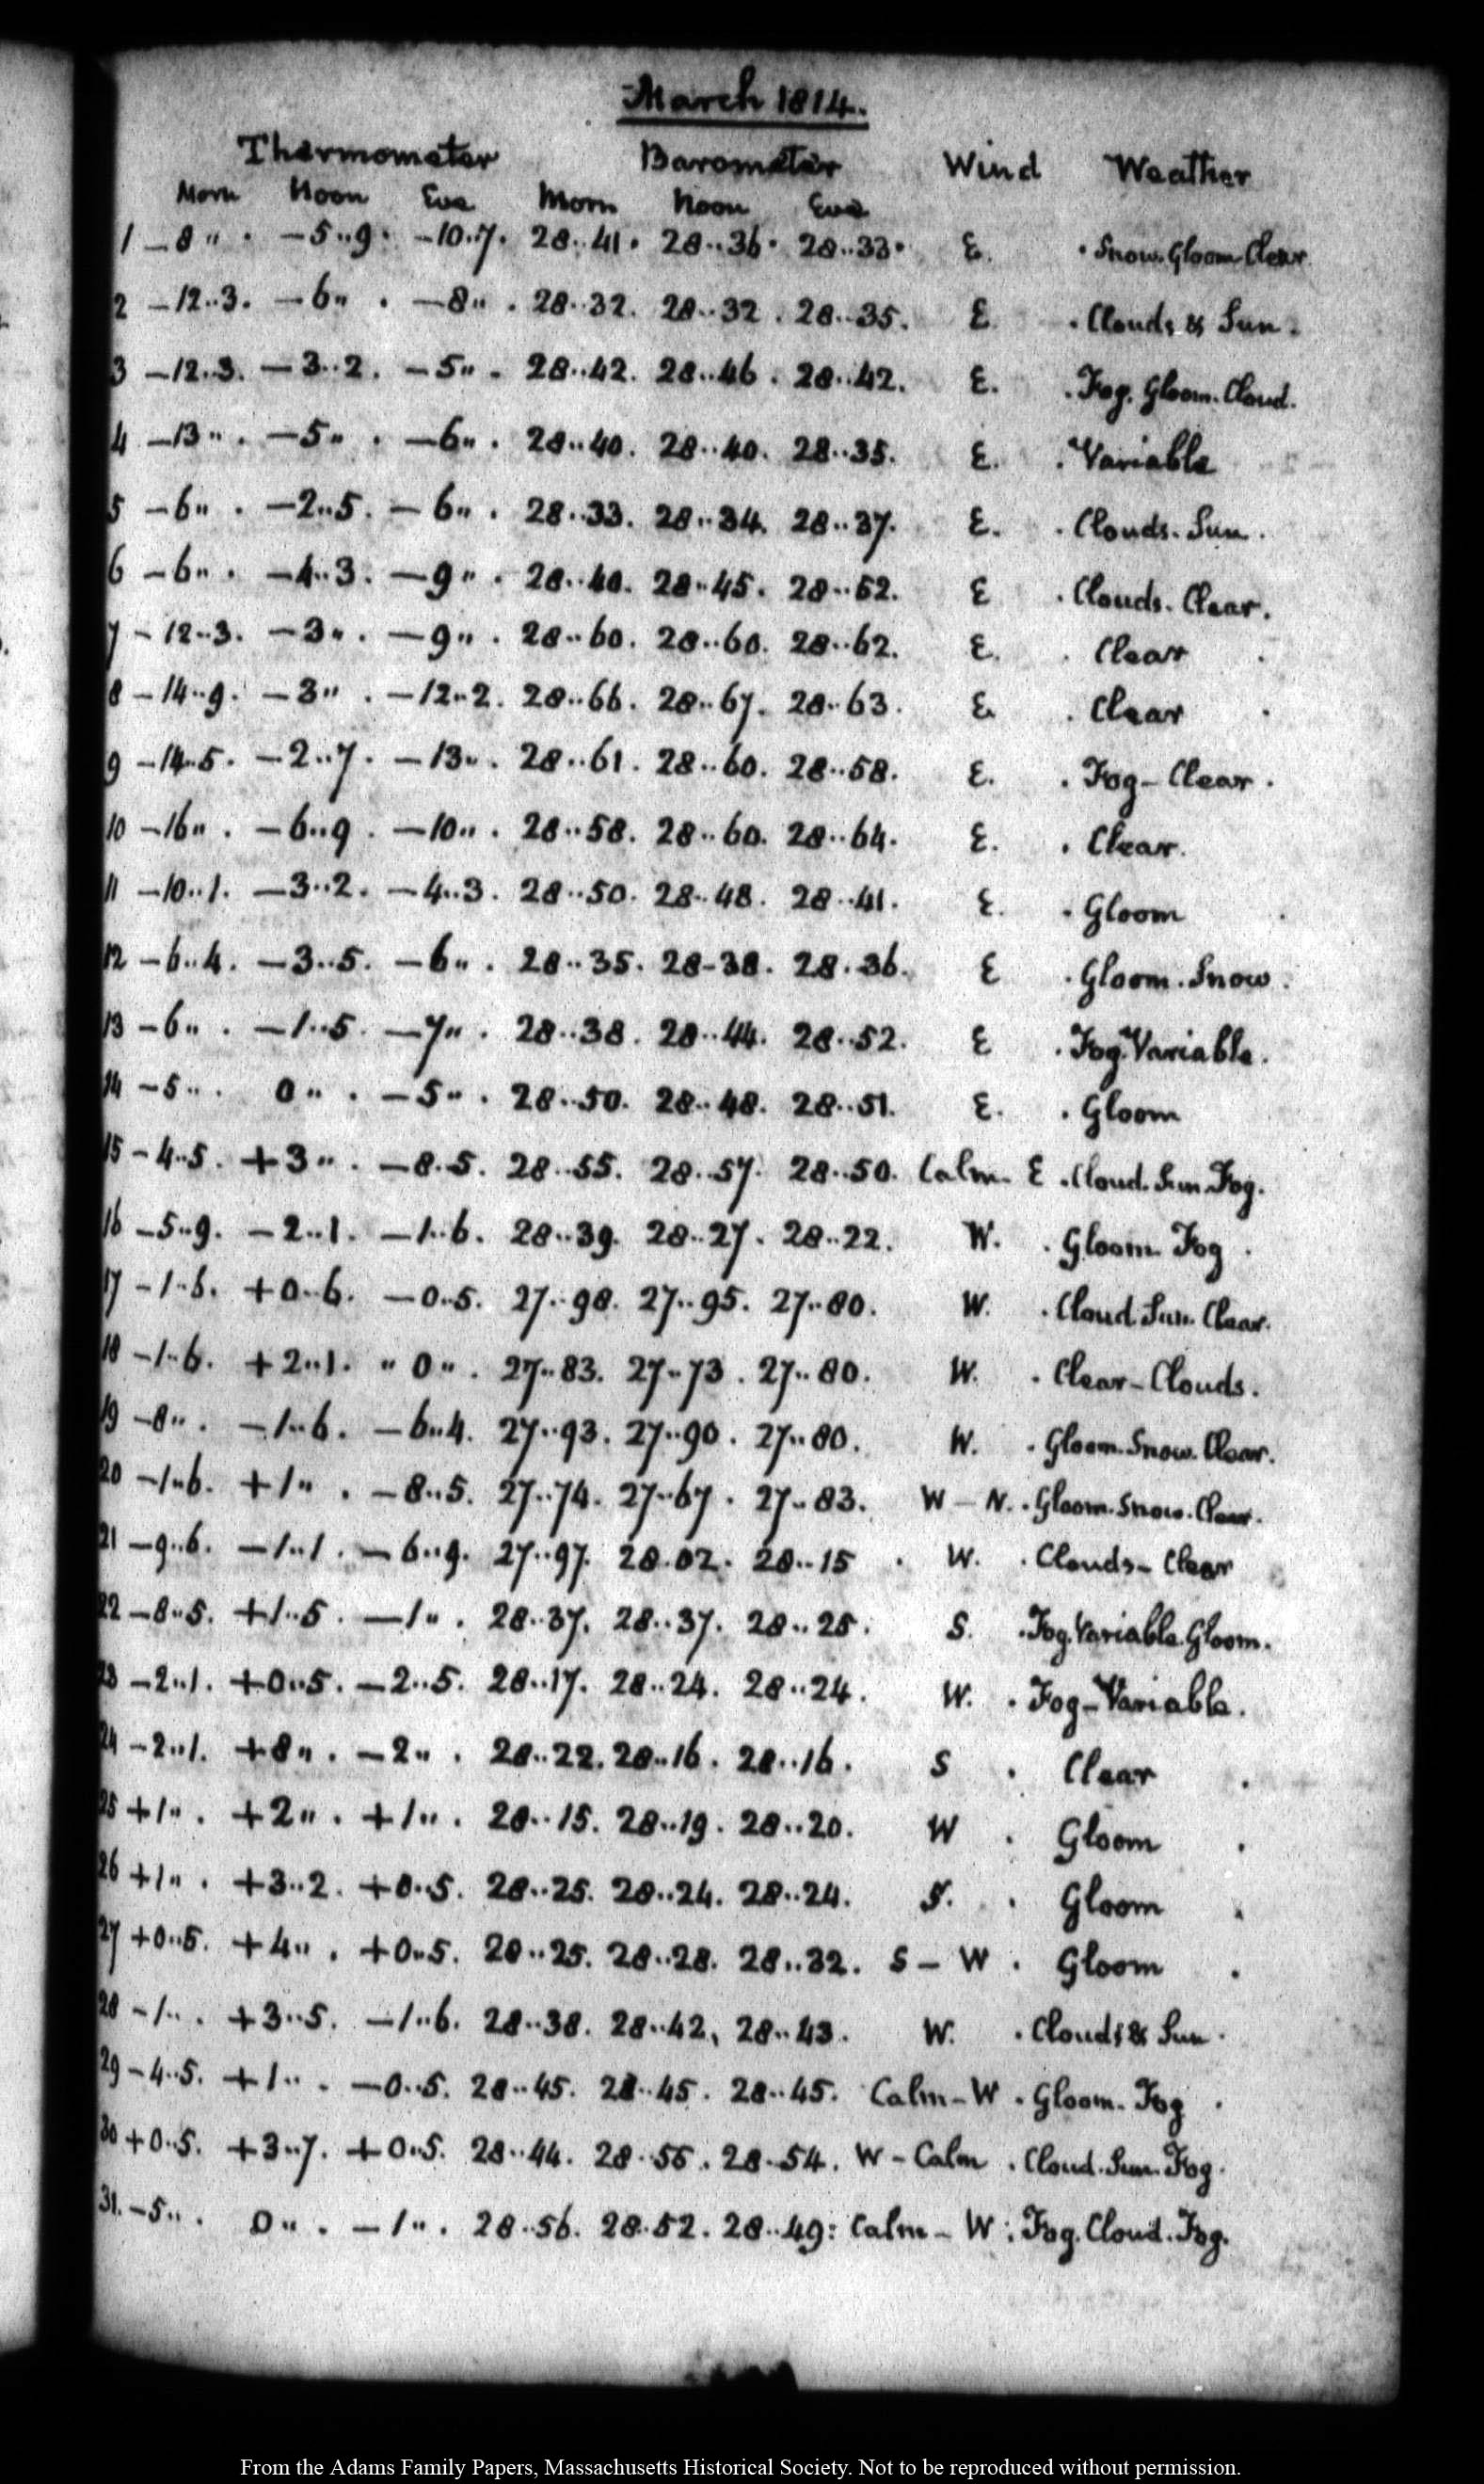 March 1814.
Thermometer Barometer Wind Weather
Morn Noon Eve Morn Noon Eve
1 -8 " . -5..9. -10..7. 28..41. 28..36. 28..33. E. . Snow. Gloom-Clear.
2 -12..3. -6" . -8" . 28..32. 28..32. 28..35. E . Clouds & Sun.
3 -12..3. -3..2. -5" . 28..42. 28..46. 28..42. E. . Fog. Gloom. Cloud.
4 -13 " . -5" . -6" . 28..40. 28..40. 28..35. E. . Variable
5 -6" . -2..5. -6" . 28..33. 28..34. 28..37. E. . Clouds. Sun.
6 -6" . -4..3. -9" . 28..40. 28..45. 28..52. E . Clouds. Clear.
7 -12..3. -3" . -9" . 28..60. 28..60. 28..62. E. . Clear .
8 -14..9. -3" . -12..2. 28..66. 28..67. 28..63. E . Clear .
9 -14..5. -2..7. -13" . 28..61. 28..60. 28..58. E. . Fog-Clear.
10 -16" . -6..9. -10" . 28..58. 28..60. 28..64. E. . Clear.
11 -10..1. -3..2. -4..3. 28..50. 28..48. 28..41. E. . Gloom .
12 -6..4. -3..5. -6" . 28..35. 28-38. 28.36. E . Gloom. Snow.
13 -6" . -1..5. -7" . 28..38. 28..44. 28..52. E . Fog. Variable.
14 -5" . 0" . -5" . 28..50. 28..48. 28..51. E. . Gloom
15 -4..5. +3" . -8..5. 28..55. 28..57. 28..50. Calm- E . Cloud. Sun. Fog.
16 -5..9. -2..1. -1..6. 28..39. 28..27. 28..22. W. . Gloom. Fog .
17 -1..6. +0..6. -0..5. 27..98. 27..95. 27..80. W. . Cloud. Sun. Clear.
18 -1..6. +2..1. " 0" . 27..83. 27..73. 27..80. W. . Clear-Clouds.
19 -8" . -1..6. -6..4. 27..93. 27..90. 27..80. W. . Gloom. Snow. Clear.
20 -1..6. +1" . -8..5. 27..74. 27..67. 27..83. W - N. . Gloom. Snow. Clear.
21 -9..6. -1..1. -6..9. 27..97. 28.02. 28..15 . W. . Clouds-Clear
22 -8..5. +1..5. -1" . 28..37. 28..37. 28..25. S. . Fog. Variable. Gloom.
23 -2..1. +0..5. -2..5. 28..17. 28..24. 28..24. W. . Fog-Variable.
24 -2..1. +8" . -2" . 28..22. 28..16. 28..16. S . Clear .
25 +1" . +2" . +1" . 28..15. 28..19. 28..20. W . Gloom .
26 +1" . +3..2. +0..5. 28..25. 28..24. 28..24. S. . Gloom .
27 +0..5. +4" . +0..5. 28..25. 28..28. 28..32. S - W . Gloom .
28 -1" . +3..5. -1..6. 28..38. 28..42. 28..43. W. . Clouds & Sun.
29 -4..5. +1" . -0..5. 28..45. 28..45. 28..45. Calm-W . Gloom. Fog .
30 +0..5. +3..7. +0..5. 28..44. 28..55. 28..54. W-Calm . Cloud. Sun. Fog.
31. -5" . 0" . -1" . 28..56. 28..52. 28..49: Calm- W: Fog. Cloud. Fog.
From the Adams Family Papers, Massachusetts Historical Society. Not to be reproduced without permission.